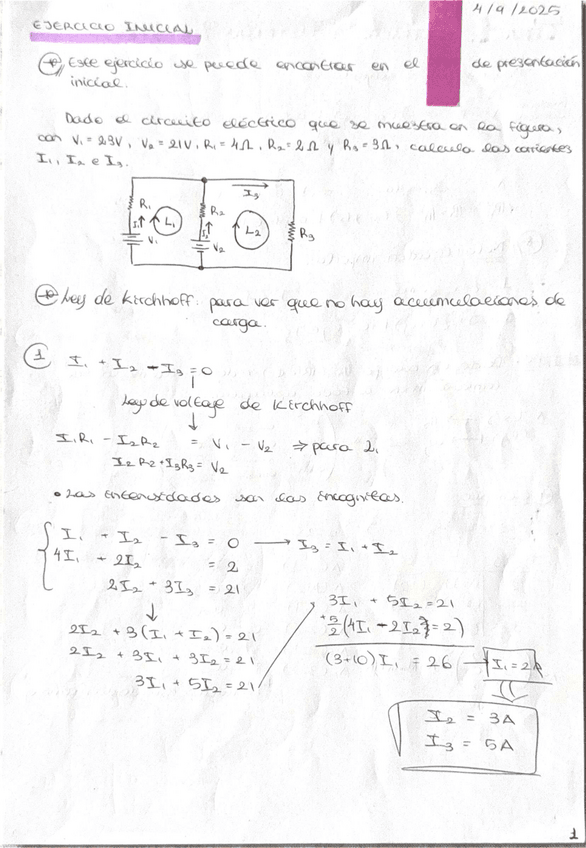 4/9/2025
EJERCICIO INICIAL
Este ejercicio se puede encontrar en el de presentación
inicial.
Dado el circuito eléctrico que se muestra en la figura,
con V₁ = 23V, V₂ = 21V, R₁ = 4Ω, R₂ = 2Ω y R₃ = 3Ω, calcula las corrientes
I₁, I₂ e I₃.
I₃
R₁ R₂
I₁ L₁ L₂ R₃
V₁ V₂
Ley de Kirchhoff: para ver que no hay acumulaciones de
carga.
1 I₁ + I₂ - I₃ = 0
Ley de voltaje de Kirchhoff
I₁R₁ - I₂R₂ = V₁ - V₂ ⇒ para L₁
I₂R₂ + I₃R₃ = V₂
• Las intensidades son las incógnitas.
I₁ + I₂ - I₃ = 0 → I₃ = I₁ + I₂
4I₁ - 2I₂ = 2
2I₂ + 3I₃ = 21
2I₂ + 3(I₁ + I₂) = 21
2I₂ + 3I₁ + 3I₂ = 21
3I₁ + 5I₂ = 21
3I₁ + 5I₂ = 21
+5/2(4I₁ - 2I₂ = 2)
(3+10)I₁ = 26 → I₁ = 2A
I₂ = 3A
I₃ = 5A
1